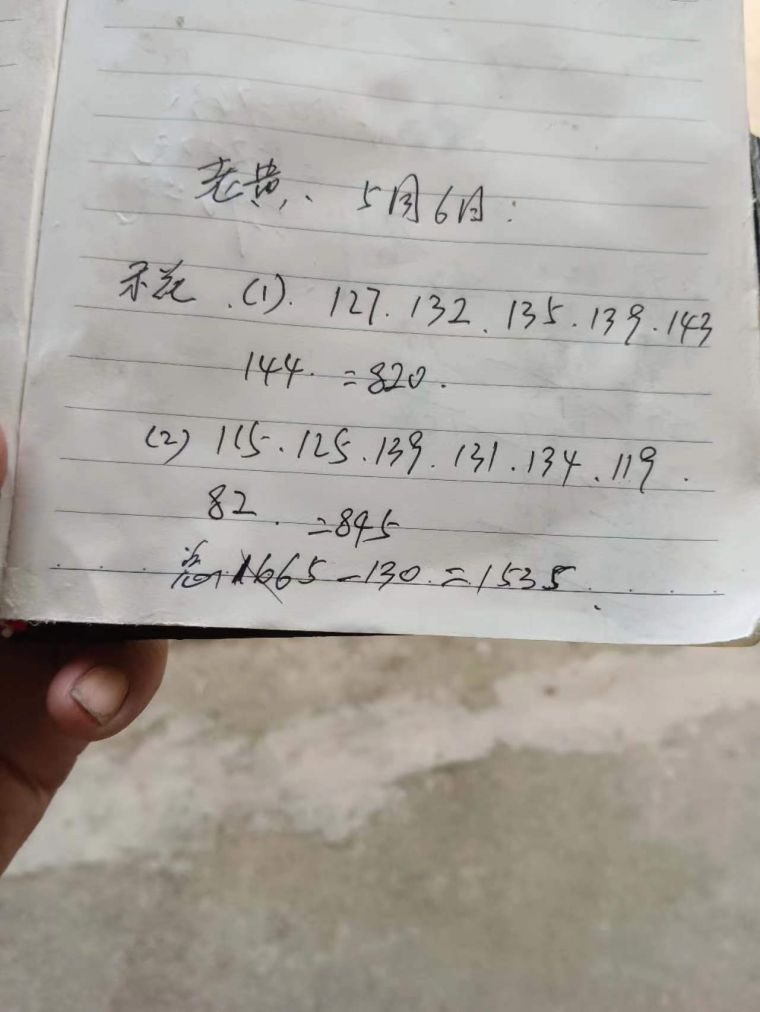 老黄,. 5月6日.
禾花.(1).127.132.135.139.143
144.=820.
(2)115.125.139.131.134.119.
82.=845
1665-130.=1535.